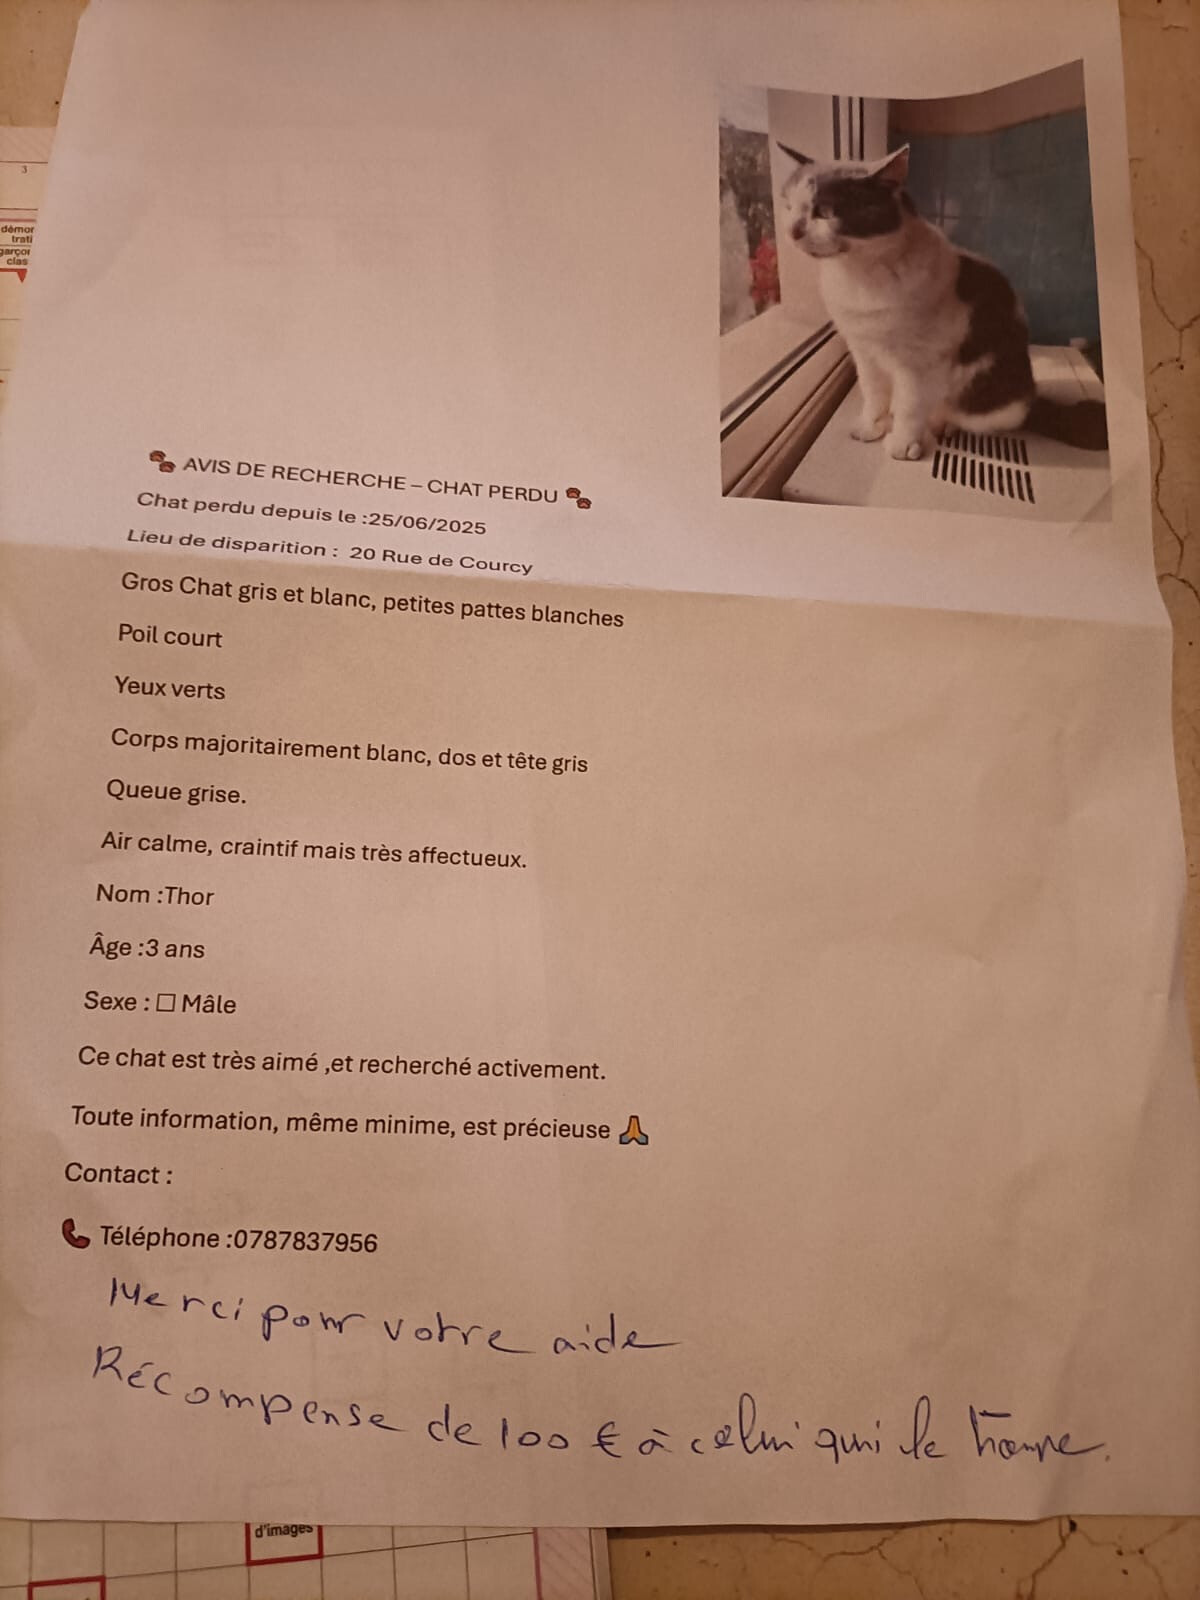 3
démor
trati
garçor
clas
🐾 AVIS DE RECHERCHE – CHAT PERDU 🐾
Chat perdu depuis le :25/06/2025
Lieu de disparition : 20 Rue de Courcy
Gros Chat gris et blanc, petites pattes blanches
Poil court
Yeux verts
Corps majoritairement blanc, dos et tête gris
Queue grise.
Air calme, craintif mais très affectueux.
Nom :Thor
Âge :3 ans
Sexe : ☐ Mâle
Ce chat est très aimé ,et recherché activement.
Toute information, même minime, est précieuse 🙏
Contact :
📞 Téléphone :0787837956
Merci pour votre aide
Récompense de 100 € à celui qui le trouve.
d'images